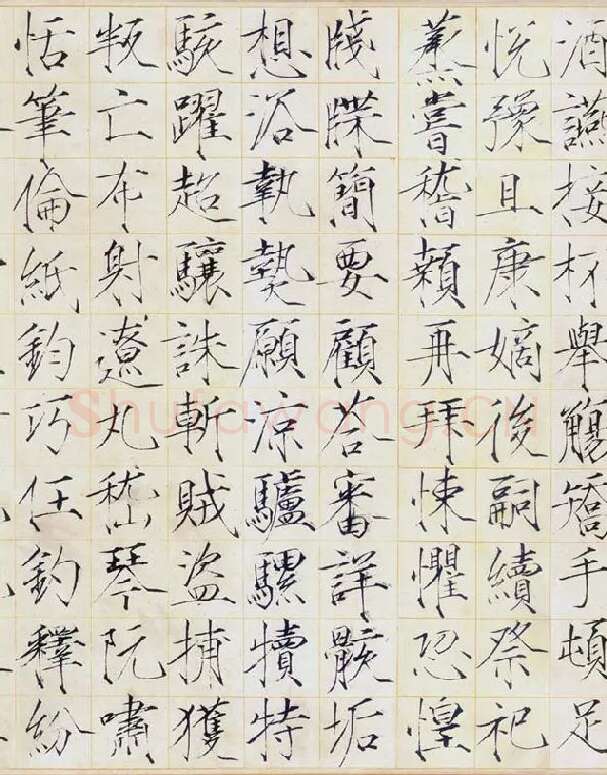 酒讌接杯舉觴矯手頓足
悅豫且康嫡後嗣續祭祀
蒸嘗稽顙再拜悚懼恐惶
牋牒簡要顧荅審詳骸垢
想浴執熱願涼驢騾犢特
駭躍超驤誅斬賊盜捕獲
叛亡布射遼丸嵇琴阮嘯
恬筆倫紙鈞巧任釣釋紛
Shufawang.CN